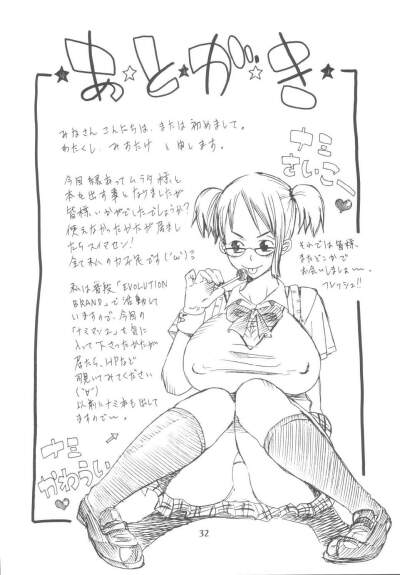 あ☆と★が☆き
みなさん こんにちは、または初めまして。
わたくし、みすたけ と申します。
今回縁あってムラタ様と
本を出す事となりましたが
皆様いかがでしたでしょうか?
使えなかったかたが居まし
たらスイマセン!
全て私の力不足です('ω')
私は普段「EVOLUTION
BRAND」で活動して
いますので、今回の
「ナミマシ2」を気に
入って下さったかたが
居たら、HPなど
覗いてみてください
('∀')
以前にナミ本も出して
ますので〜。
ナミ
さいこー
それでは皆様、
またどこかで
お会いしましょー〜。
フレッシュ!!
ナミ
かわうい
32